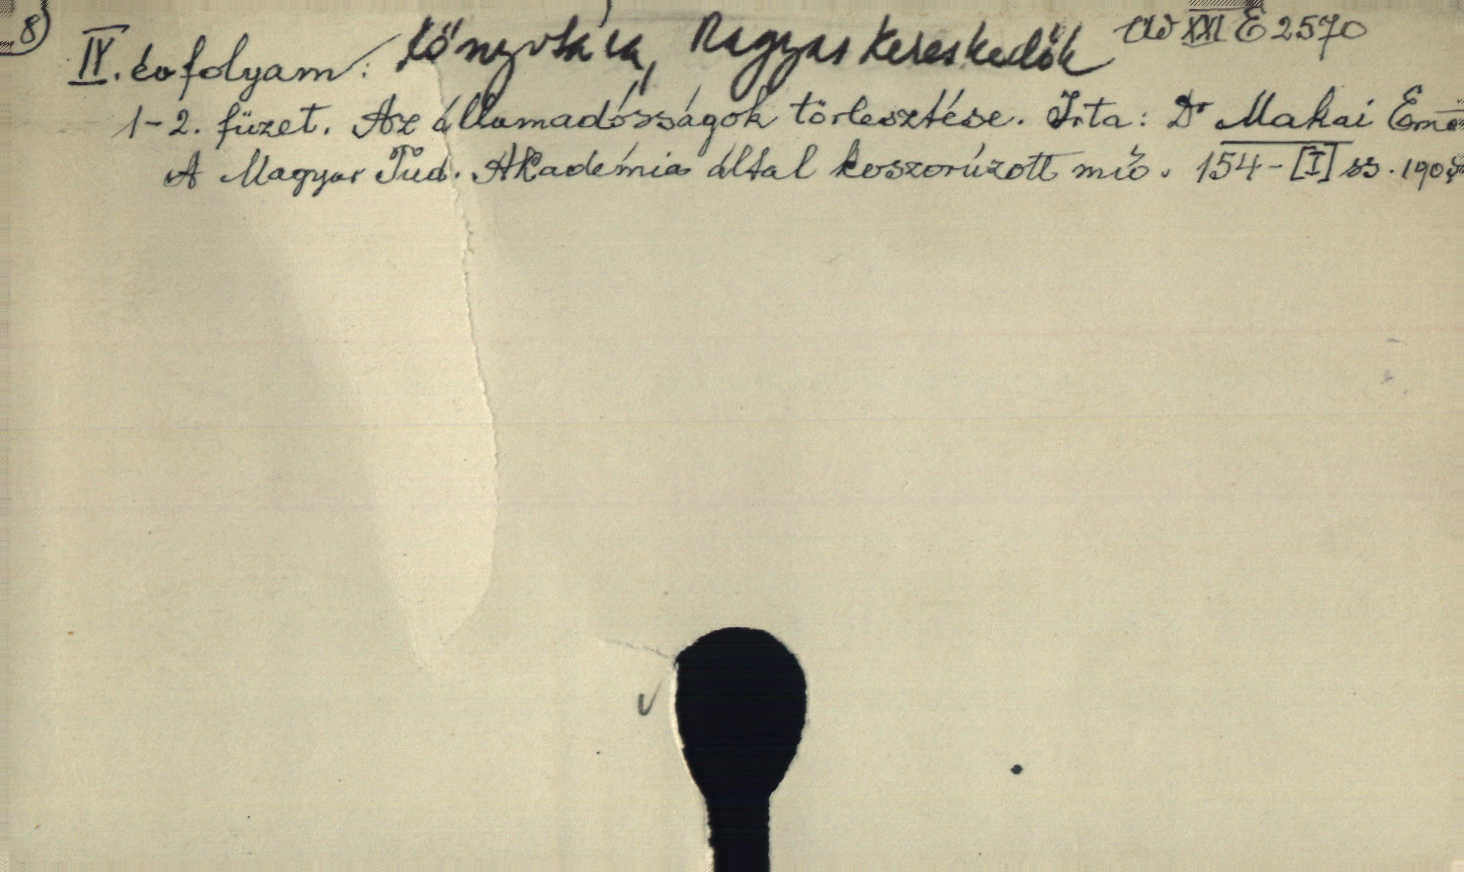 8)
IV. évfolyam: Könyvtára, Magyar Kereskedők Ad XXI E 2570
1-2. füzet. Az államadósságok törlesztése. Irta: Dr Makai Ernő
A Magyar Tud. Akadémia által koszorúzott mű. 154-[I] ss. 190